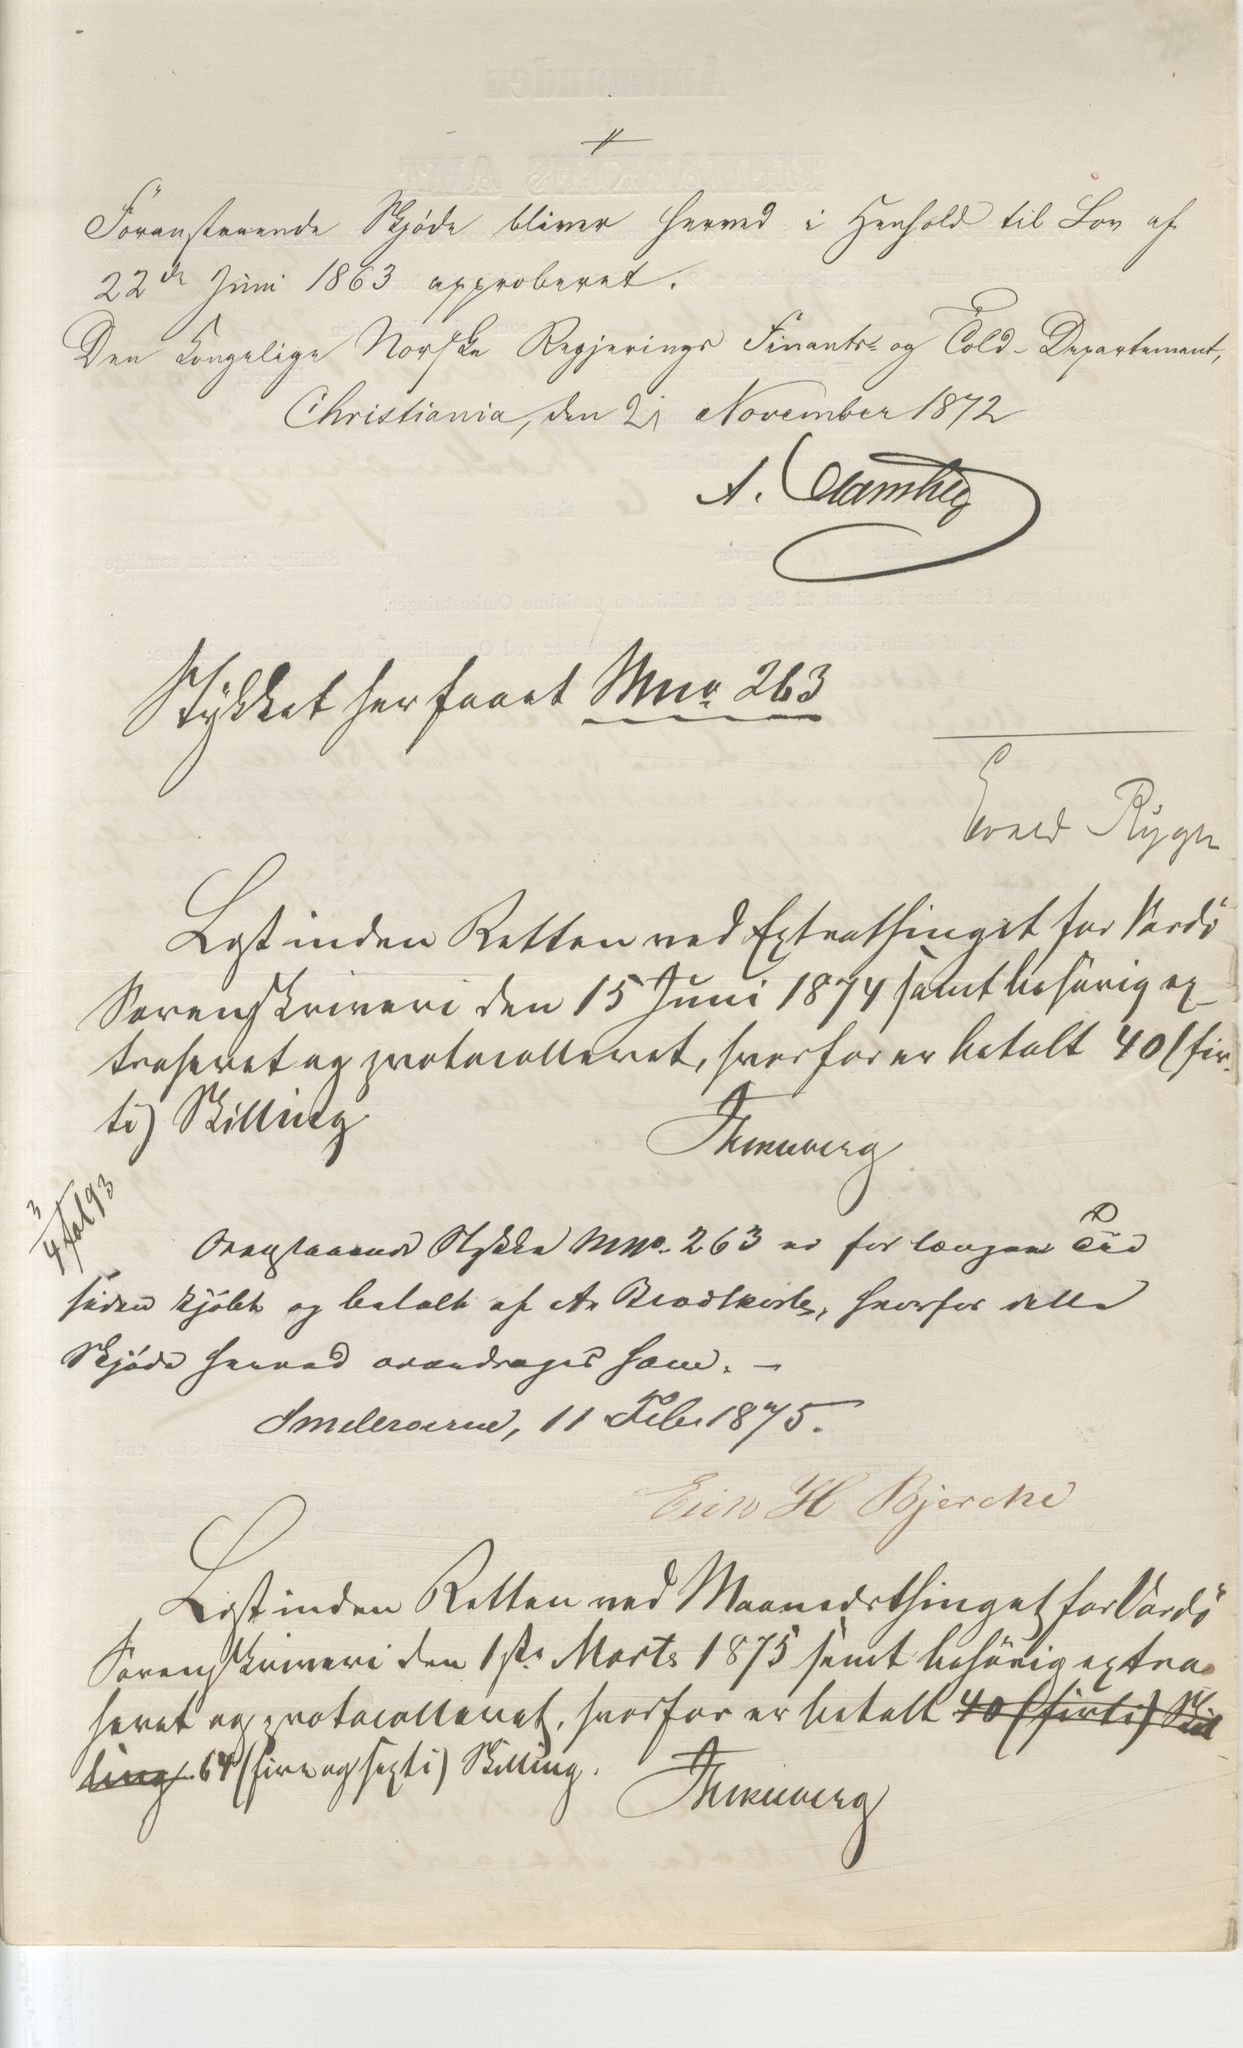 Foranstaaende Skjøde bliver herved i Henhold til Lov af
22de Juni 1863 approberet.
Den Kongelige Norske Regjerings Finants- og Told-Departement,
Christiania, den 21 November 1872
A.
Stykket her faaet Mno. 263
Evald Rygh
Læst inden Retten ved Extrathinget for Vardö
Sorenskriveri den 15 Juni 1874 samt behörig ex-
traheret og protocolleret, hvorfor er betalt 40 (fir-
ti) Skilling
3/4 fol 93
Ovenstaaende Stykke Mno. 263 er for længere Tid
siden kjöbt og betalt af hvorfor dette
Skjöde herved overdrages ham. -
11 Febr 1875.
H Bjercke
Læst inden Retten ved Maanedsthinget for Vardö
Sorenskriveri den 1ste Marts 1875 samt behörig extra
heret og protocolleret, hvorfor er betalt 40 (firti) Skil
ling 64 (fire og sexti) Skilling.